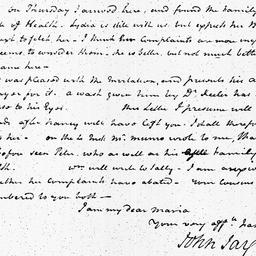 on Thursday I arrived here, and found the Family
of Health. Lydia is still with us but expects her B
to fetch her - I think her complaints are more
seems to consider them. She is better but not much bett
came here -
was pleased with the Invitation, and presents his
for it. a wash given him by Dr.
to his Eyes. This Letter I presume will
after Nancy will have left you. I shall theref
to her - on the 12 Inst. Mr. Munro wrote to me, tha
before seen Peter who as well as his family
Wm. will write to Sally - I am
her complaints have abated - Your cousins
remembered to you both -
I am my dear Maria
Your very afft. 
John Jay